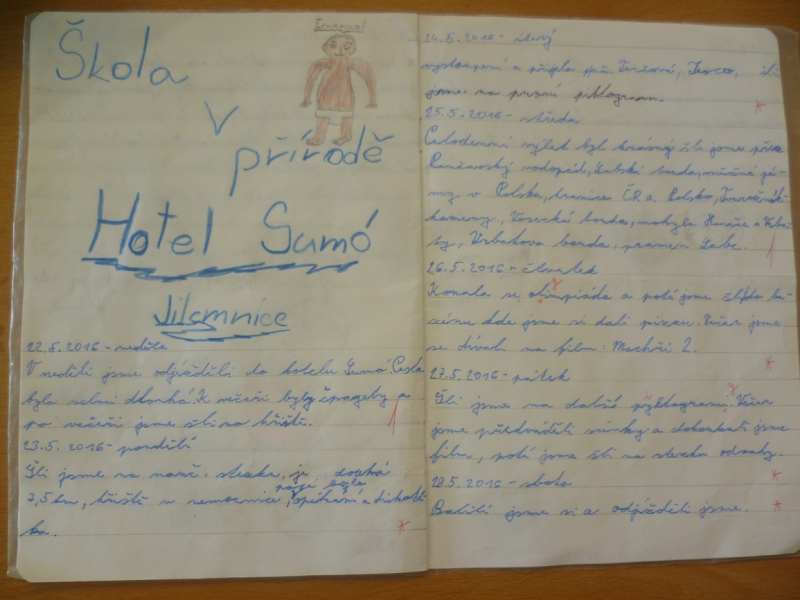 Emanuel
Škola
v
přírodě
Hotel Sumó
Jilemnice
22.5.2016 - neděle
V neděli jsme odjížděli do hotelu Sumó. Cesta
byla velmi dlouhá. K večeři byly špagety a
po večeři jsme šli na hřiště.
23.5.2016 - pondělí
Šli jsme na nauč. stezku, je dlouhá
7,5 km, hřiště u nemocnice, byla opékání a diskoté-
ka.
24.5.2016 - úterý
vystoupení a přijela Terčová, Tesco, šli
jsme na první piktogram.
25.5.2016 - středa
Celodenní výlet byl krásný šli jsme přes
Pančavský vodopád, Labská bouda, sněžné já-
my v Polsku, hranice ČR a Polska, Tvarožník
kameny, Vosecká bouda, mohyla Hanče a Vrba-
ty, Vrbatova bouda, pramen Labe.
26.5.2016 - čtvrtek
Konala se olimpiáda a poté jsme šli do ba-
zénu kde jsme si dali pizzu. Večer jsme
se dívali na film: Machři 2.
27.5.2016 - pátek
Šli jsme na další piktogram. Večer
jsme předváděli scénky a dokoukali jsme
film, poté jsme šli na stezku odvahy.
28.5.2016 - sobota
Balili jsme si a odjížděli jsme.